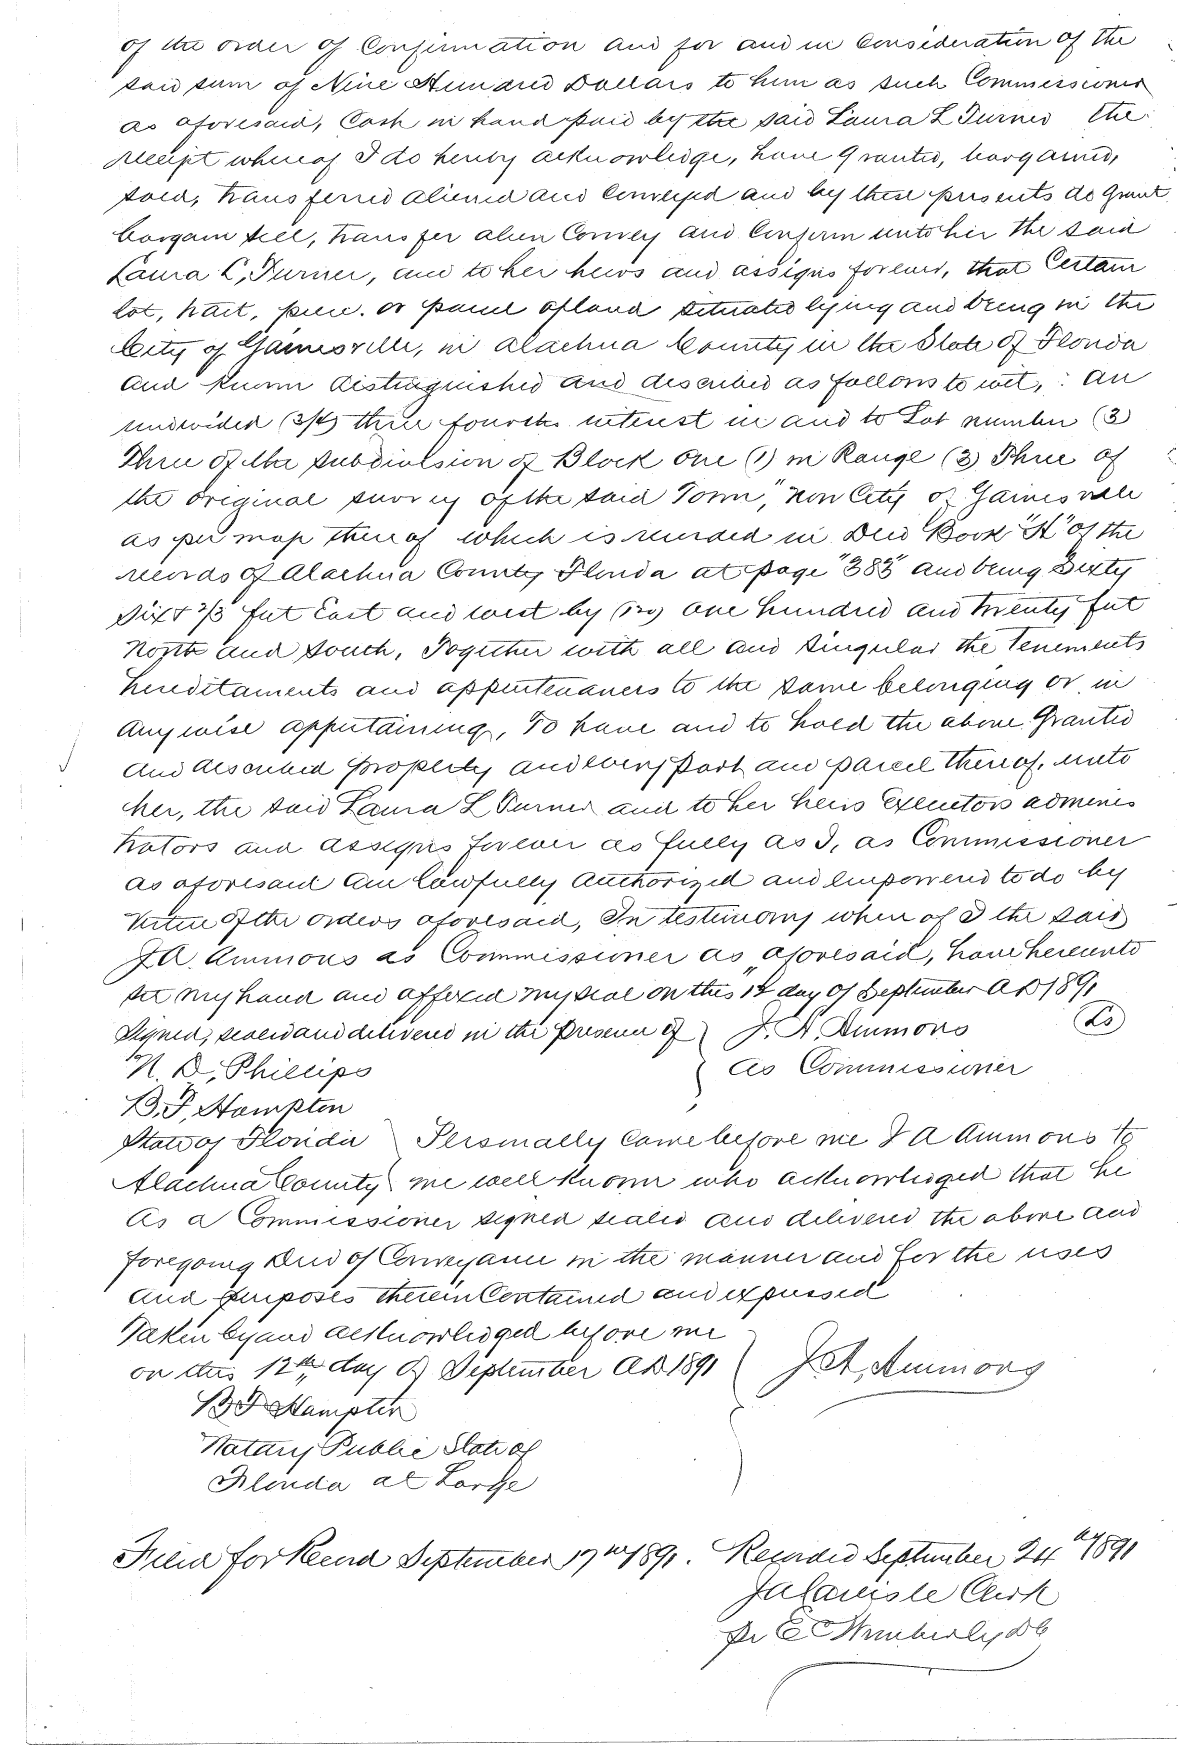 of the order of Confirmation and for and in Consideration of the
said sum of Nine Hundred Dollars to him as such Commissioner
as aforesaid, Cash in hand paid by the said Laura L Turner the
receipt whereof I do hereby acknowledge, have Granted, bargained,
sold, transferred aliened and Conveyed and by these presents do Grant
bargain sell, transfer alien Convey and Confirm unto her the said
Laura L, Turner, and to her heirs and assigns forever, that Certain
lot, tract, piece. or parcel of land situated lying and being in the
City of Gainesville, in Alachua County in the State of Florida
and known distinguished and described as follows to wit, : An
undivided (3/4) three fourths interest in and to Lot number (3)
Three of the Subdivision of Block One (1) in Range (3) Three of
the original survey of the said Town, now City of Gainesville
as per map thereof which is recorded in Deed Book "A" of the
records of Alachua County Florida at page "383" and being Sixty
Six & 2/3 feet East and west by (120) one hundred and twenty feet
North and South, Together with all and Singular the Tenements
hereditaments and appurtenances to the same belonging or in
anywise appertaining, To have and to hold the above Granted
and described property and every part and parcel thereof, unto
her, the said Laura L Turner and to her heirs Executors adminis
trators and assigns forever as fully as I, as Commissioner
as aforesaid am lawfully Authorized and Empowered to do by
virtue of the orders aforesaid, In testimony whereof I the said
J A. Ammons as Commissioner as aforesaid, have hereunto
set my hand and affixed my seal on this 12 day of September AD 1891
Signed, sealed and delivered in the presence of J. A. Ammons (LS)
N. D. Phillips as Commissioner
B. F. Hampton
State of Florida Personally Came before me J A Ammons to
Alachua County me well known who acknowledged that he
as a Commissioner signed sealed and delivered the above and
foregoing Deed of Conveyance in the manner and for the uses
and purposes therein Contained and expressed
Taken by and acknowledged before me
on this 12th, day of September AD 1891 J A. Ammons
B F Hampton
Notary Public State of
Florida at Large
Filed for Record September 17 1891. Recorded September 24 1891
Clerk
E C Wimberly DC